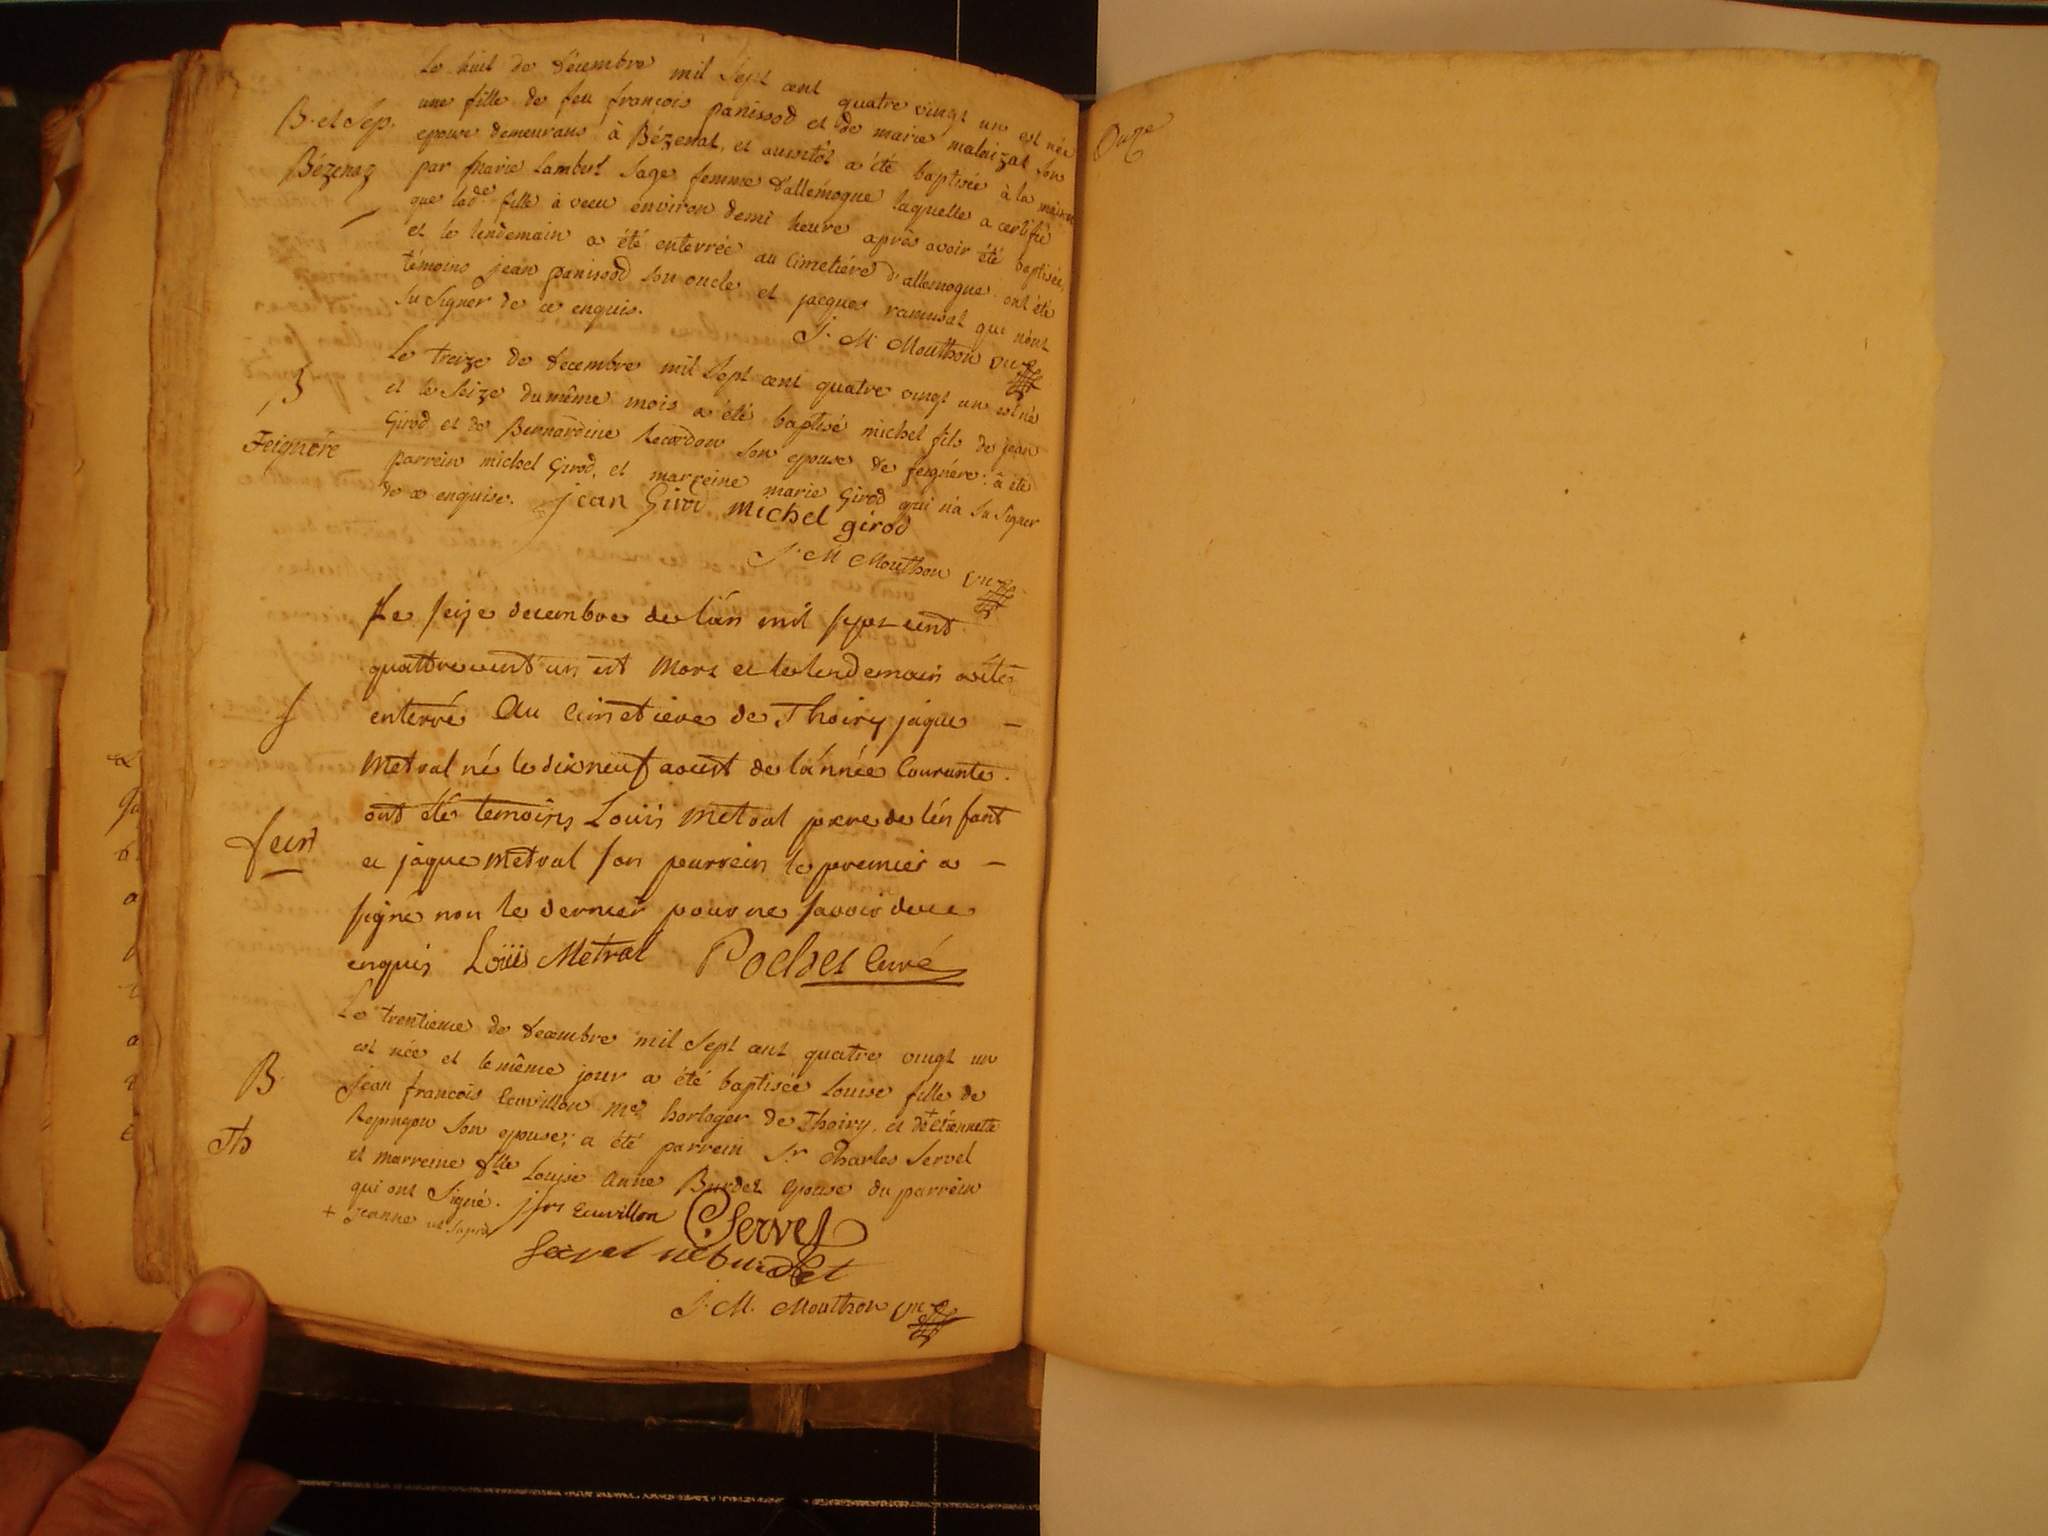 Le huit de Décembre mil Sept cent quatre vingt un est née
une fille de feu françois panissod et de marie malaizat son
B. et Sep. epouse demeurans à Bézenat, et aussitôt a été baptisée à la maison
Bézenaz par marie Lambert Sage femme d'allemogne laquelle a certifié
que lade fille à vecu environ demi heure après avoir été baptisée,
et le lendemain a été enterrée au Cimetiére d'allemogne. ont été
témoins jean panissod son oncle et jacques ramusat qui n'ont
su signer de ce enquis.
J. M. Mouthon
Le treize de decembre mil Sept cent quatre vingt un est né
et le Seize du même mois a été baptisé michel fils de jean
Girod et de Bernardine Recordon son epouse de feignére: â été
feignére
parrein michel Girod, et marreine marie Girod qui n'a Su Signer
de ce enquise. jean Girod michel girod
J. M. Mouthon
Le seize decembre de l'an mil sept cent
quattre un est mort et le lendemain a été
enterré Au Cimetiere de Thoiry jaque
S
Metral né le dixneuf aoust de l'année Courante.
ont été temoins Louis Metral pere de l'enfant
et jaque Metral son parrein le premier a
signé non le dernier pour ne savoir de ce
enquis Loüis Métral Pochet Curé
Le trentieme de decembre mil Sept cent quatre vingt un
est née et le même jour a été baptisée Louise fille de
B. Jean françois Ecuvillon Me horloger de Thoiry, et de + étiennette
son epouse; a été parrein Sr Charles Servel
Th
et marreine dlle Louise Anne Burdet epouse du parrein
qui ont Signé. j frs Ecuvillon C. Servel
+ jeanne ut supra
Servel né burdet
J. M. Mouthon